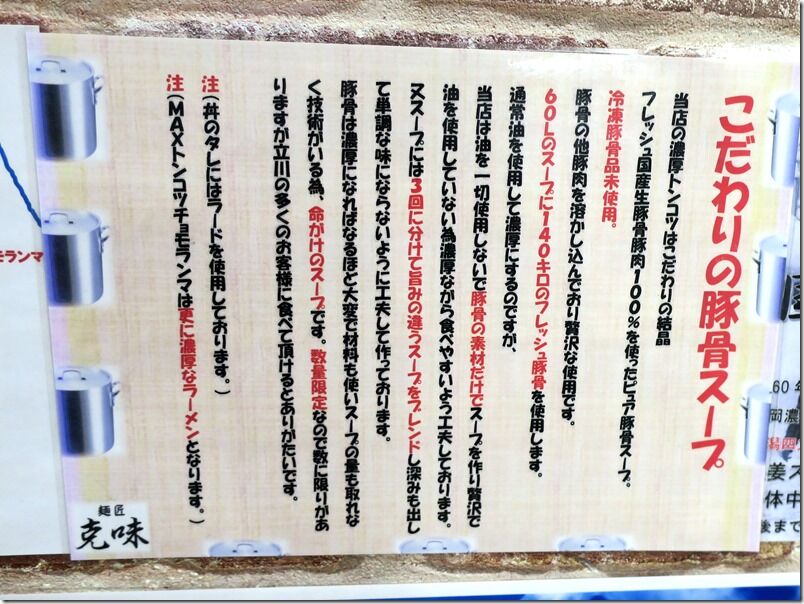 こだわりの豚骨スープ
当店の濃厚トンコツはこだわりの結晶
フレッシュ国産生豚骨豚肉100%を使ったピュア豚骨スープ。
冷凍豚骨品未使用。
豚骨の他豚肉を溶かし込んでおり贅沢な使用です。
60Lのスープに140キロのフレッシュ豚骨を使用します。
通常油を使用して濃厚にするのですが、
当店は油を一切使用しないで豚骨の素材だけでスープを作り贅沢で
油を使用していない為濃厚ながら食べやすいよう工夫しております。
又スープには3回に分けて旨みの違うスープをブレンドし深みも出し
て単調な味にならないように工夫して作っております。
豚骨は濃厚になればなるほど大変で材料も使いスープの量も取れな
く技術がいる為、命がけのスープです。数量限定なので数に限りがあ
りますが立川の多くのお客様に食べて頂けるとありがたいです。
注(丼のタレにはラードを使用しております。)
注(MAXトンコツチョモランマは更に濃厚なラーメンとなります。)
麺匠
克味
モランマ
60年
岡濃
潟四
姜ス
体中
後まで